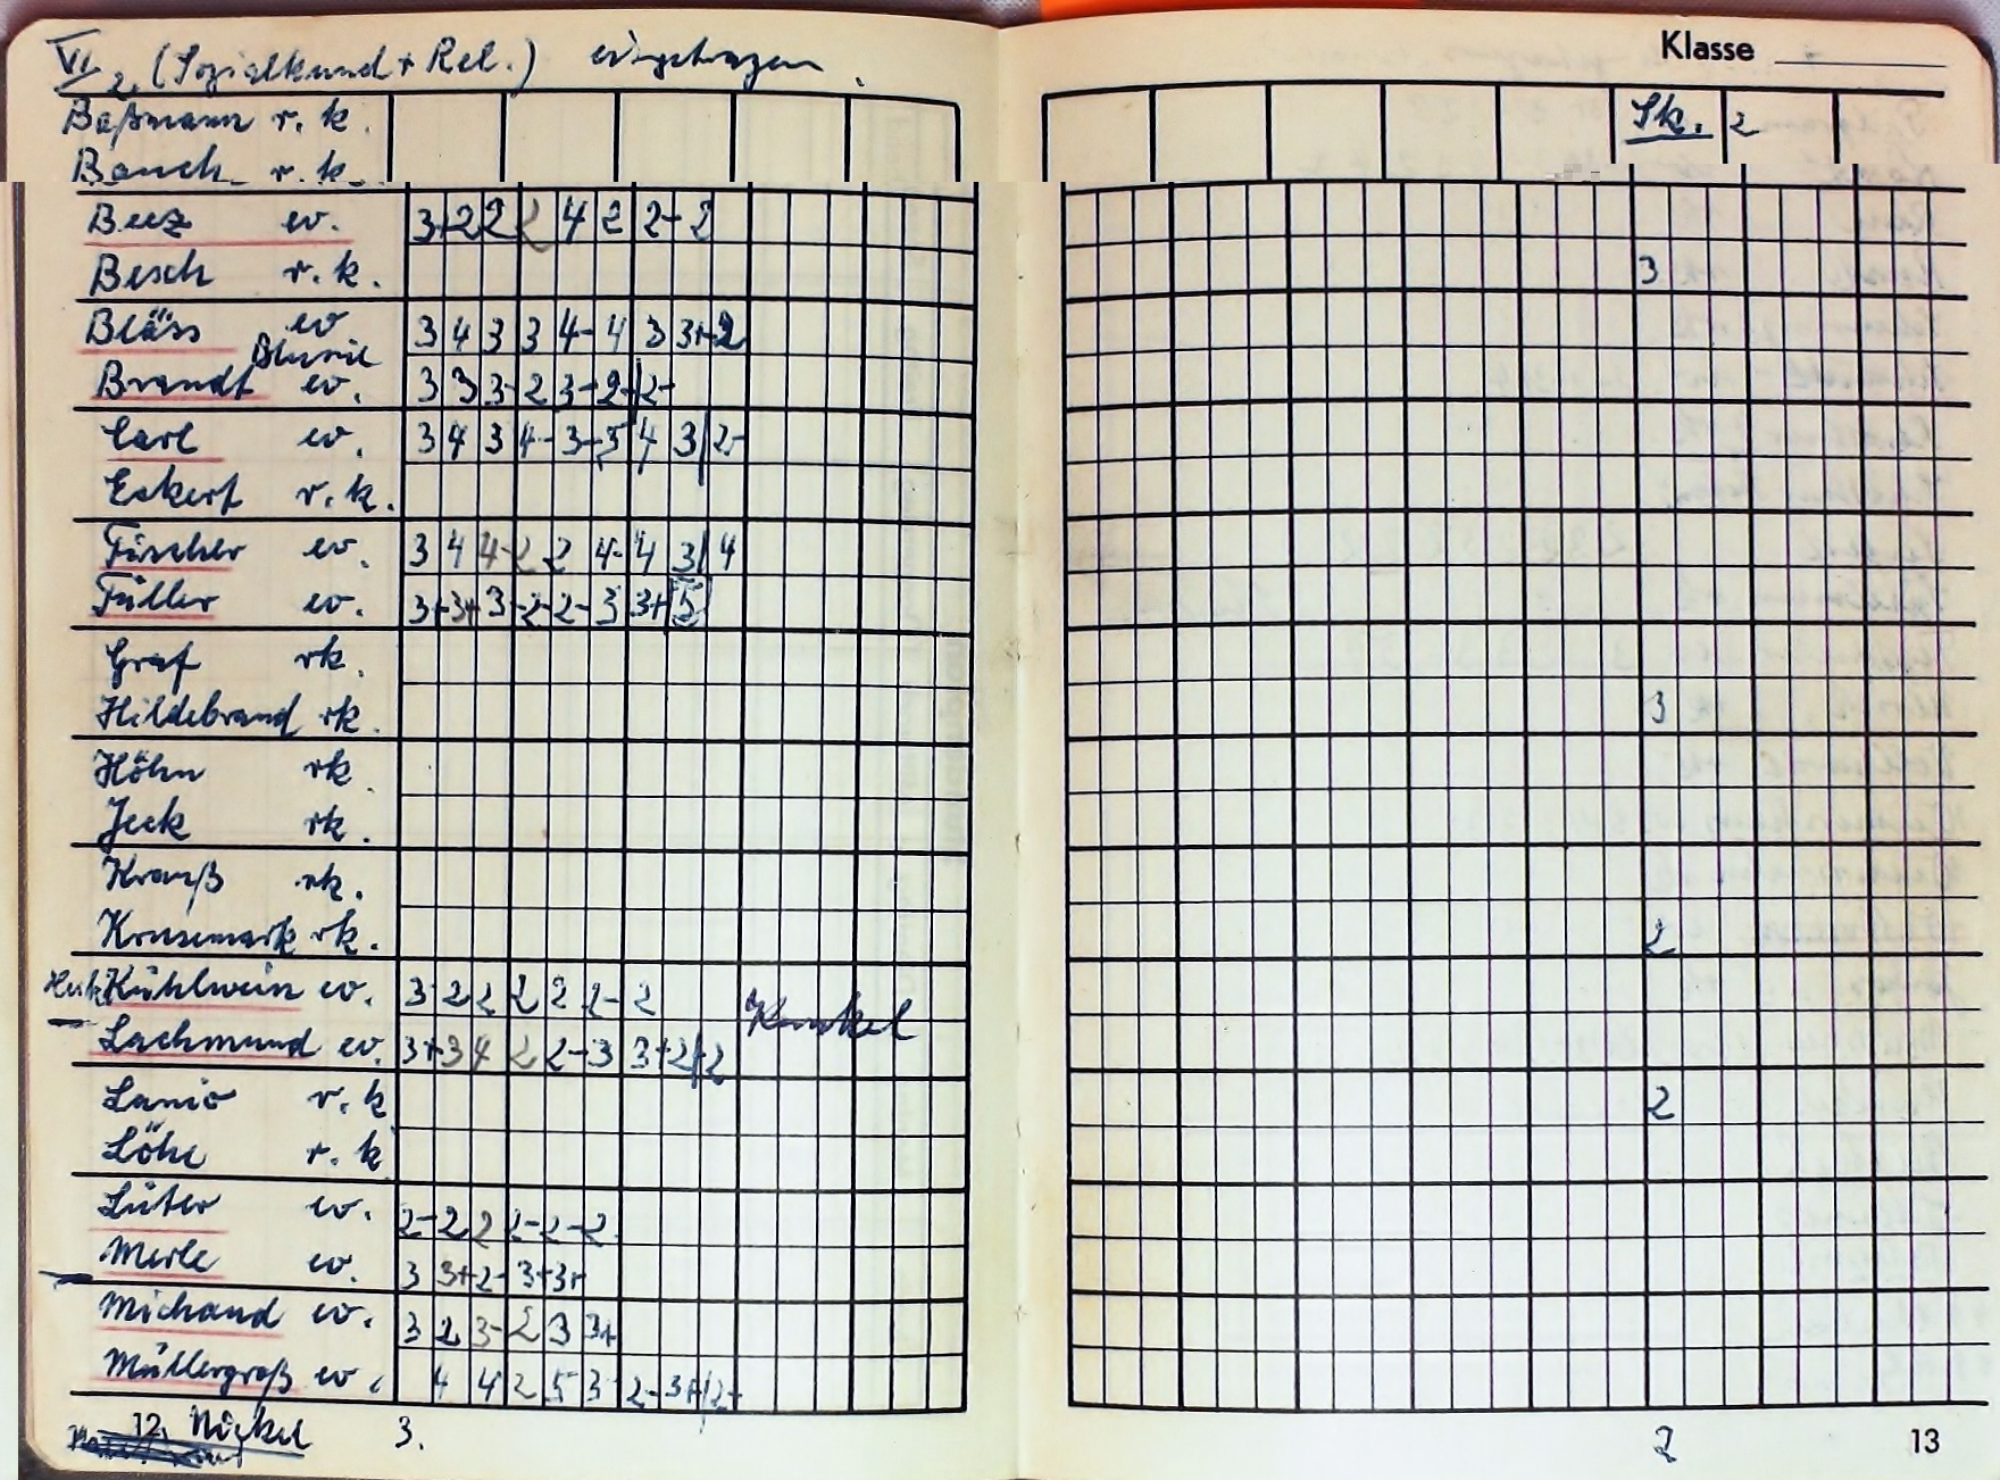 VI/2. (Sozialkund + Rel.) eingetragen.
Klasse
Baßmann r.k.
Sk. 2
Bauch r.k.
Beez ev. 3+ 2 2 2 4 2 2- 2
Besch r.k. 3
Bläss ev 3 4 3 3 4- 4 3 3+ 2
Brandt ev. 3 3 3- 2 3- 2- 2-
Carl ev. 3 4 3 4- 3- 5 4 3 2-
Eckert r.k.
Fischer ev. 3 4 4- 2 2 4- 4 3 4
Füller ev. 3+ 3+ 3- 2- 2- 3 3+ 5
Graf rk.
Hildebrand rk. 3
Höhn rk.
Jeck rk.
Krauß rk.
Krusemark rk. 2
Kühlwein ev. 3 2 2 2 2 2- 2
Kunkel
Lachmund ev. 3+ 3 4 2 2- 3 3+ 2+ 2
Lanio r.k 2
Löhe r.k
Lüter ev. 2- 2 2 2- 2- 2
Merle ev. 3 3+ 2- 3+ 3+
Michaud ev. 3 2 3- 2 3 3+
Müllergroß ev. 4 4 2 5 3 2- 3+ 2+
12. Nickel 3. 2
13